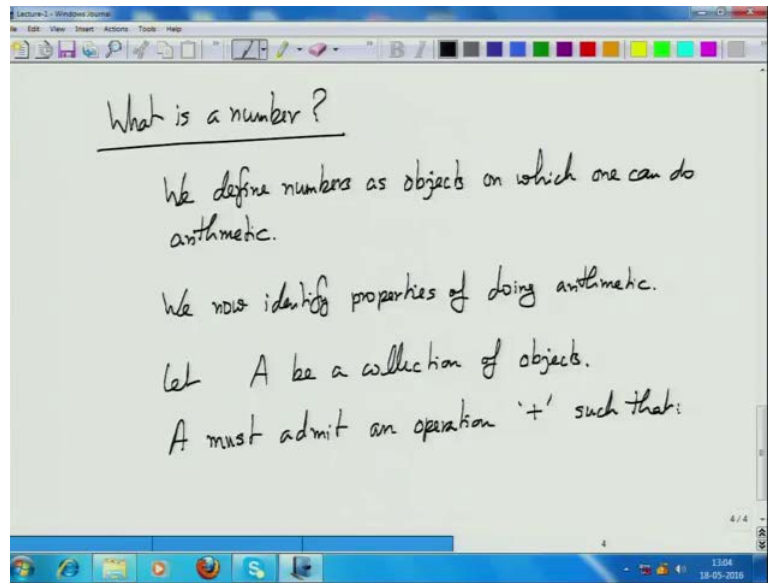 Lecture-1 - Windows Journal
File Edit View Insert Actions Tools Help
B I
What is a number?
We define numbers as objects on which one can do
arithmetic.
We now identify properties of doing arithmetic.
Let A be a collection of objects.
A must admit an operation '+' such that:
4 / 4
4
13:04
18-05-2016